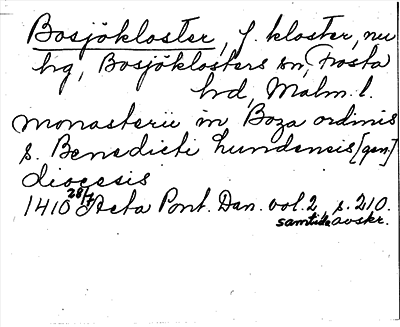 Bosjökloster, f. kloster, nu
hg, Bosjöklosters sn, Frosta
hd, Malm. l.
monasterii in Boza ordinis
s. Benedicti Lundensis [gen.]
diocesis
1410 28/7 Acta Pont. Dan. vol. 2, s. 210.
samtida avskr.